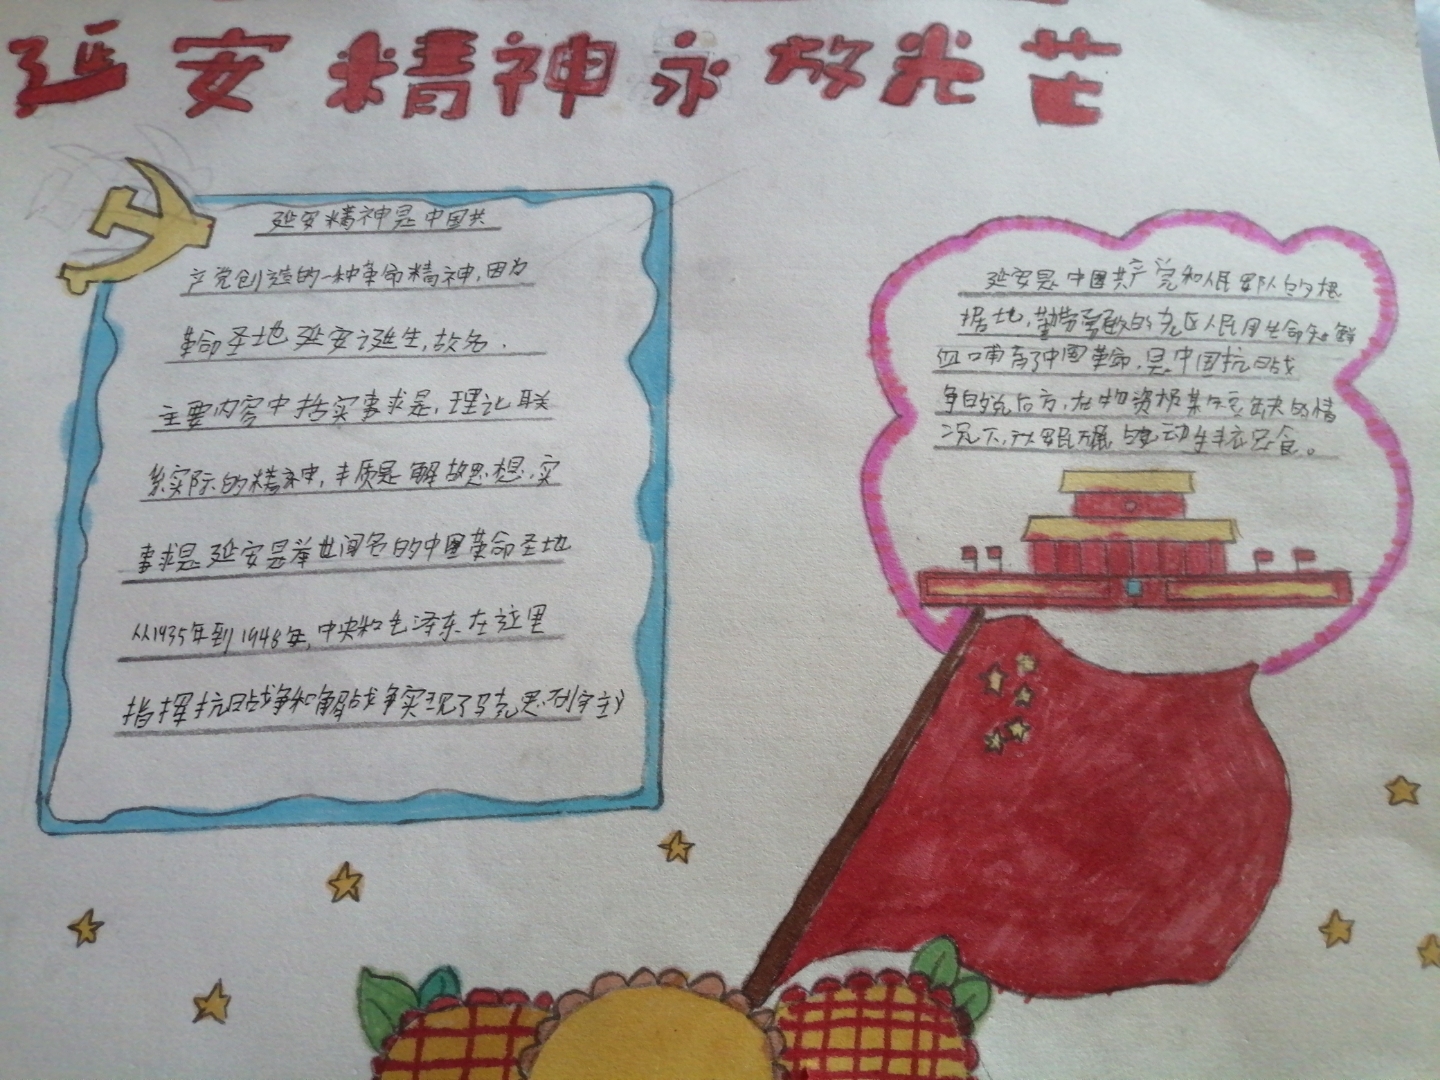 延安精神永放光芒
延安精神是中国共
产党创造的一种革命精神,因为
革命圣地延安诞生,故名.
主要内容中括实事求是,理论联
系实际的精神,丰质是解放思想,实
事求是延安是举世闻名的中国革命圣地
从1935年到1948年,中央和毛泽东在这里
指挥抗日战争和解战争实现了马克思列宁主义
延安是中国共产党和人民军队的根
据地,勤劳勇敢的老区人民用生命和鲜
血哺育了中国革命,是中国抗日战
争的总后方,在物资极其 缺的情
况下, 动 丰衣足食。